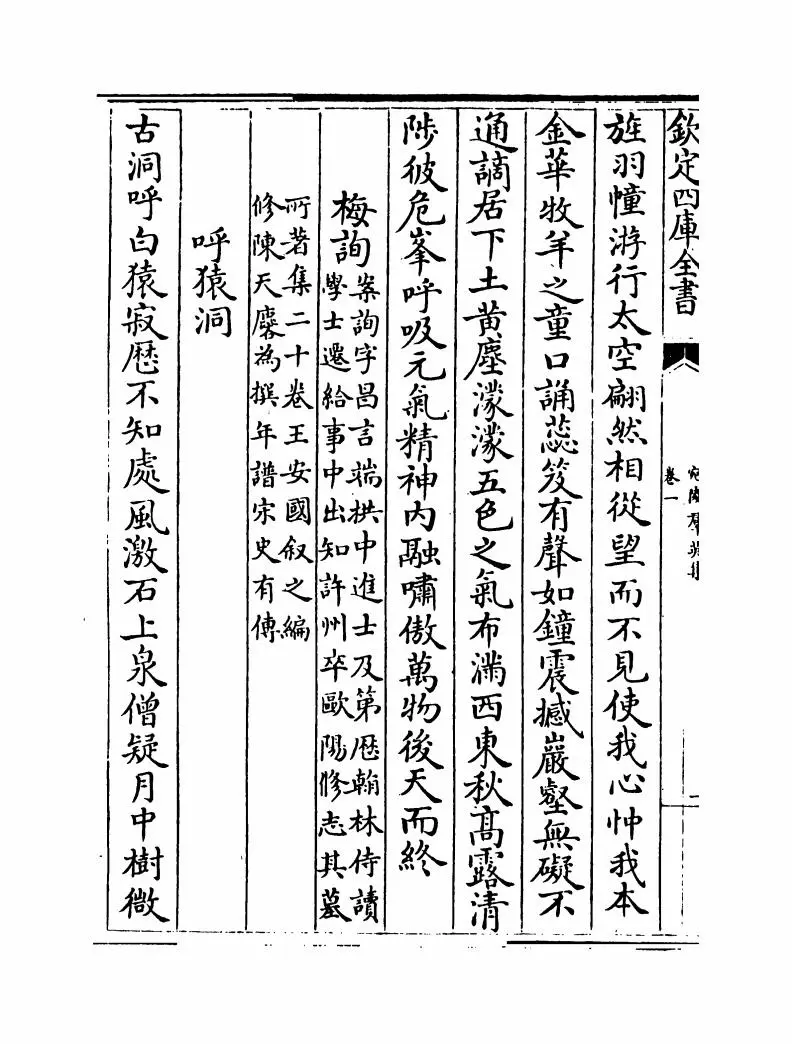 欽定四庫全書
卷一
旌羽幢游行太空翩然相從望而不見使我心忡我本
金華牧羊之童口誦蕊笈有聲如鐘震撼巖壑無礙不
通謫居下土黃塵濛濛五色之氣布滿西東秋高露清
陟彼危峯呼吸元氣精神内融嘯傲萬物後天而終
梅詢
案詢字昌言端拱中進士及第歴翰林侍讀
學士遷給事中出知許州卒歐陽修志其墓
所著集二十卷王安國叙之編
修陳天麐為撰年譜宋史有傳
呼猿洞
古洞呼白猿寂歴不知處風激石上泉僧疑月中樹微